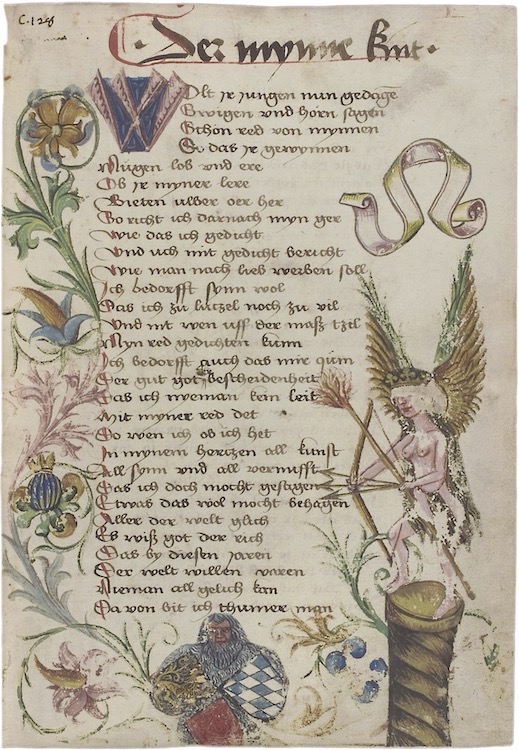 C. 128
Der mynne kut
Wolt jr jungen nun gedage
Swigen vnd horn sagen
Schon red von mynnen
So das jr gewynnen
Mügen lob vnd ere
Ob jr myner lere
Bieten vlber oer her
So richt ich darnach myn ger
Wie das ich gedicht
Vnd uch mit gedicht bericht
Wie man nach lieb werben soll
Ich bedorfft synn wol
Das ich zu lutzel noch zu vil
Vnd nit wen uff der masz tzil
Myn red gedichten kunn
Ich bedorfft auch das mir qum
Der gut got bescheidenheit
Das ich nyeman kein leit
Mit myner red det
So wen ich ob ich het
In mynem hertzen all kunst
All synn vnd all vernufft
Das ich doch mocht gesagen
Etwas das wol mocht behagen
Aller der welt glich
Es wisz got der rich
Das by diesen jaren
Der welt willen varen
Nieman all gelich kan
Da von bit ich thumer man